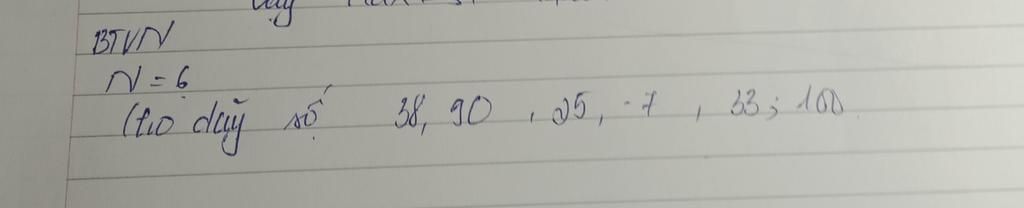 BTVN
N = 6
Cho dãy số 38, 90, 25, -7, 33; 100